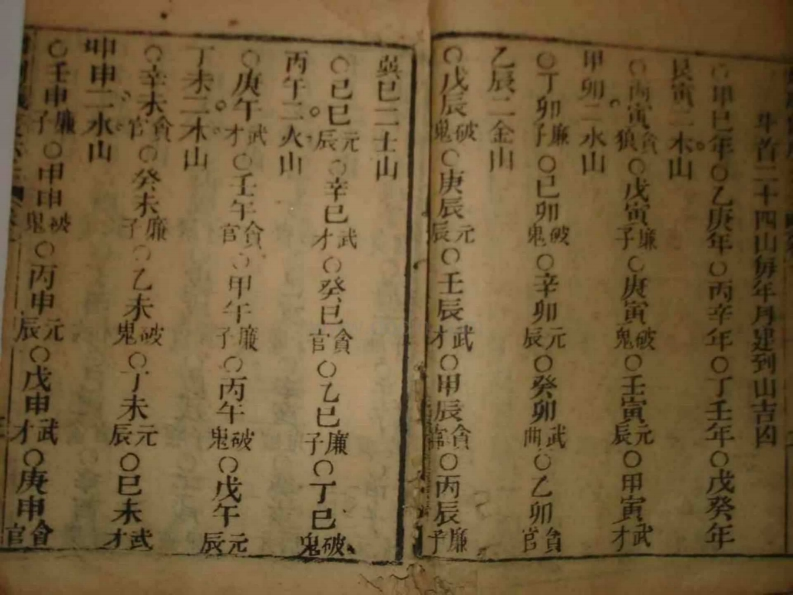 斗首二十四山每年月建到山吉凶
○甲巳年○乙庚年○丙辛年○丁壬年○戊癸年
艮寅二木山
○丙寅貪狼○戊寅廉子○庚寅破鬼○壬寅元辰○甲寅武才
甲卯二水山
○丁卯廉子○己卯破鬼○辛卯元辰○癸卯武曲○乙卯貪官
乙辰二金山
○戊辰破鬼○庚辰元辰○壬辰武才○甲辰貪官○丙辰廉子
巽巳二土山
○己巳元辰○辛巳武才○癸巳貪官○乙巳廉子○丁巳破鬼
丙午二火山
○庚午武才○壬午貪官○甲午廉子○丙午破鬼○戊午元辰
丁未二木山
○辛未貪官○癸未廉子○乙未破鬼○丁未元辰○巳未武才
坤申二水山
○壬申廉子○甲申破鬼○丙申元辰○戊申武才○庚申貪官